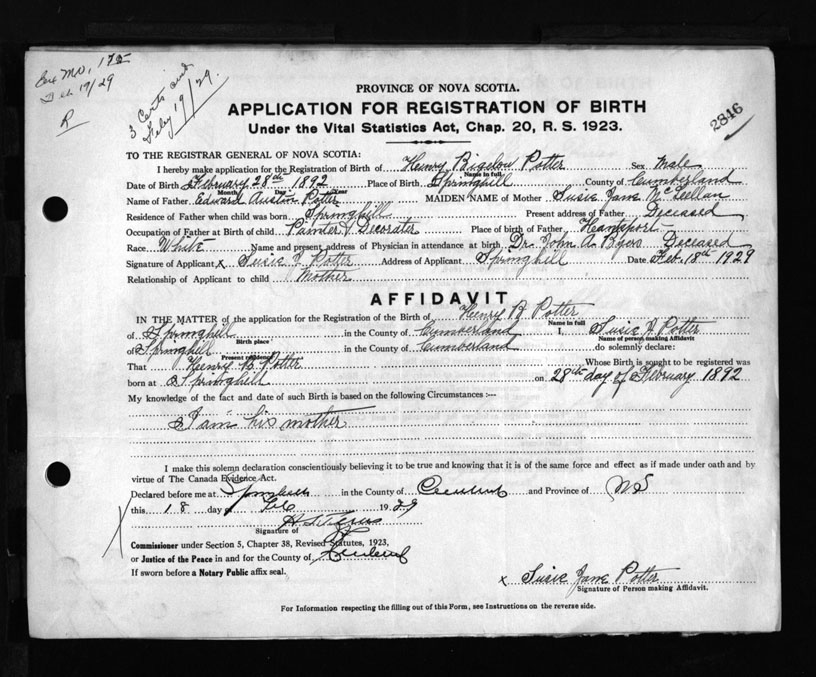 Feb 19/29
R
3 Certs
Feby 19/29.
2846
PROVINCE OF NOVA SCOTIA.
APPLICATION FOR REGISTRATION OF BIRTH
Under the Vital Statistics Act, Chap. 20, R. S. 1923.
TO THE REGISTRAR GENERAL OF NOVA SCOTIA:
I hereby make application for the Registration of Birth of Henry Bigelow Potter Sex Male
Name in full
Date of Birth February 28th 1892 Place of Birth Springhill County of Cumberland
Month Day Year
Name of Father Edward Auston Potter MAIDEN NAME of Mother Susie Jane McLellan
Residence of Father when child was born Springhill Present address of Father Deceased
Occupation of Father at Birth of child Painter & Decorater Place of birth of Father Hantsport
Race White Name and present address of Physician in attendance at birth Dr. John A. Byers Deceased
Signature of Applicant x Susie J. Potter Address of Applicant Springhill Date Feb. 18th 1929
Relationship of Applicant to child Mother
AFFIDAVIT
IN THE MATTER of the application for the Registration of the Birth of Henry B Potter
Name in full
of Springhill in the County of Cumberland I, Susie Potter
Birth place Name of person making Affidavit
of Springhill in the County of Cumberland do solemnly declare:
Present residence
That Henry B. Potter Whose Birth is sought to be registered was
born at Springhill on 28th day of February 1892
My knowledge of the fact and date of such Birth is based on the following Circumstances :—
I am his mother
I make this solemn declaration conscientiously believing it to be true and knowing that it is of the same force and effect as if made under oath and by
virtue of The Canada Evidence Act.
Declared before me at Springhill in the County of Cumberland and Province of NS
this 18 day of Feb 1929
Signature of
Commissioner under Section 5, Chapter 38, Revised Statutes, 1923,
or Justice of the Peace in and for the County of Cumberland
If sworn before a Notary Public affix seal.
x Susie Jane Potter
Signature of Person making Affidavit.
For Information respecting the filling out of this Form, see Instructions on the reverse side.